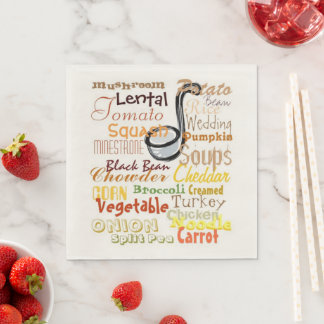 mushroom Potato
Lental Bean
Tomato Rice
Squash Wedding
MINESTRONE Pumpkin
Black Bean Soups
Chowder Cheddar
CORN Broccoli Creamed
Vegetable Turkey
Chicken
ONION Noodle
Split Pea Carrot